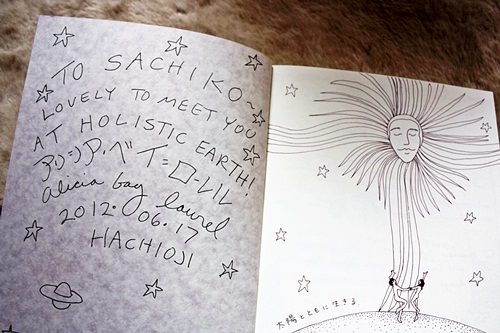 TO SACHIKO~
LOVELY TO MEET YOU
AT HOLISTIC EARTH!
アリシア・ベイ=ローレル
alicia bay laurel
2012.06.17
HACHIOJI
太陽とともに生きる